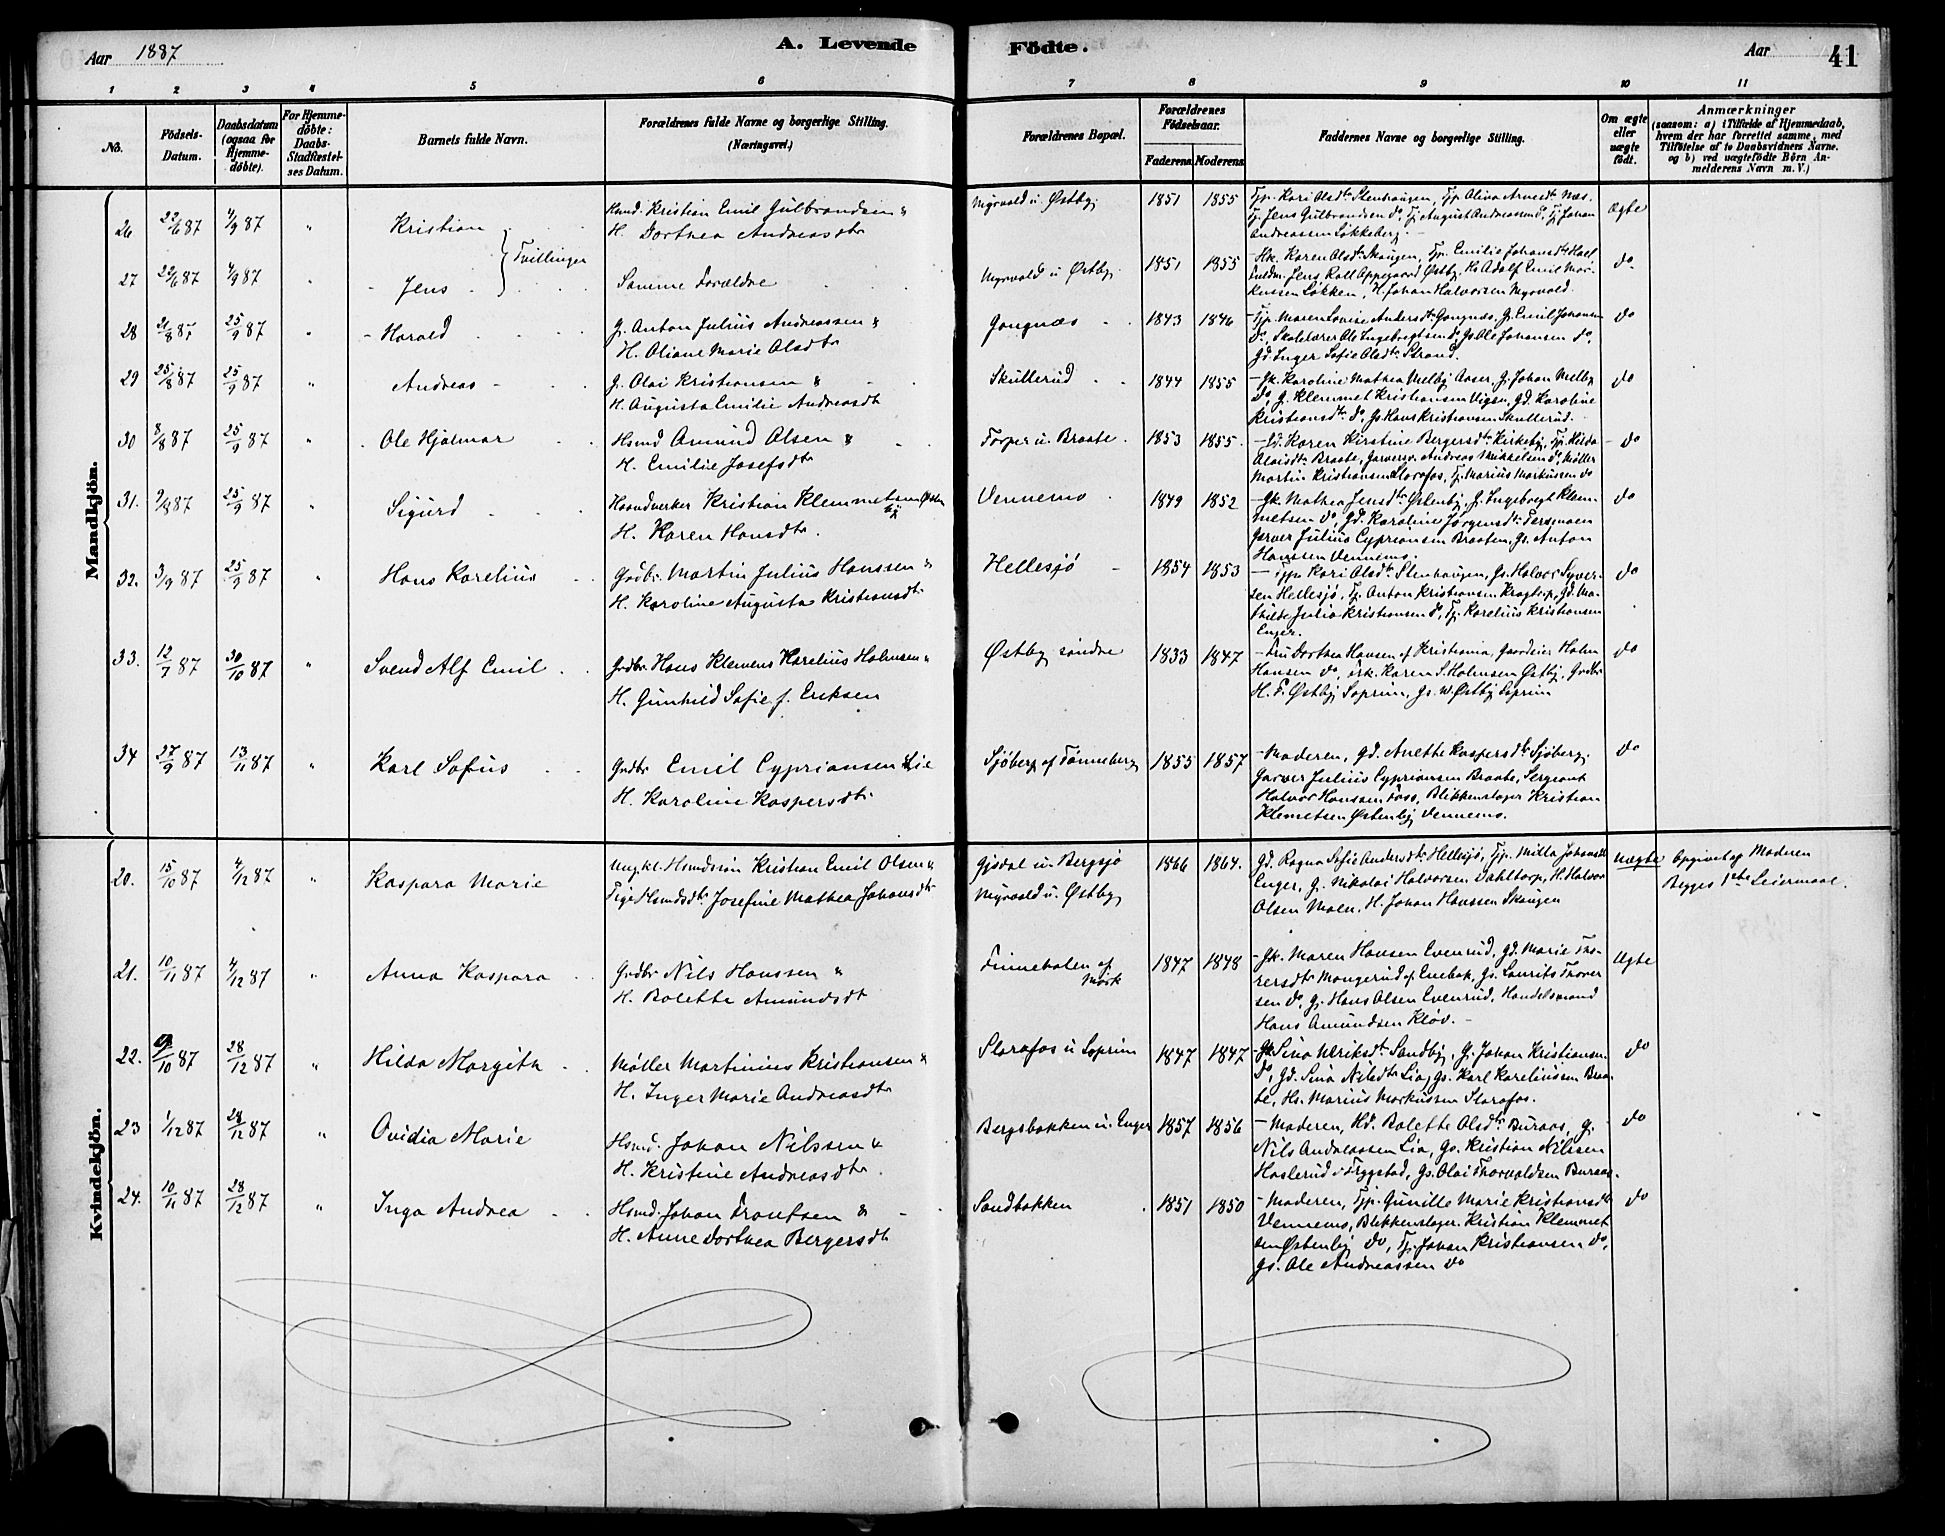 Aar 1887
A. Levende Födte.
Aar 41
1 2 3 4 5 6 7 8 9 10 11
No.
Födsels-Datum.
Daabsdatum (ogsaa for Hjemme-döbte).
For Hjemme-döbte: Daabs-Stadfæstel-ses Datum.
Barnets fulde Navn.
Forældrenes fulde Navne og borgerlige Stilling. (Næringsvei.)
Forældrenes Bopæl.
Forældrenes Födselsaar.
Faderens. Moderens.
Faddernes Navne og borgerlige Stilling.
Om ægte eller uægte født.
Anmærkninger
(saasom: a) i Tilfælde af Hjemmedaab,
hvem der har forrettet samme, med
Tilföielse af to Daabsvidners Navne.
og b) ved uægtefödte Börn An-
melderens Navn m. V.)
Mandkjön.
26 22/6 87 4/9 87 " Kristian } Tvillinger
Husmd. Kristian Emil Gulbrandsen &
H. Dorthea Andreasdtr
Myrvold u Østby 1851 1855
Tjp. Kari Olsdtr Stenhaugen, Tjp. Oliva Arnesdtr Næs.
Tj. Jens Gulbrandsen do, Tj August Andreassen do, Tj Johan
Andreassen Løkkeberg.
Ægte
27 22/6 87 4/9 87 " Jens
Samme Forældre
Myrvold u Østby 1851 1855
Hk. Karen Olsdtr Skaugen, Tjp. Emilie Johansdtr
Jens Oppegaard Østby, Adolf Emil Mar-
kussen Løkken, H. Johan Halvorsen Myrvold.
do
28 21/8 87 25/9 87 " Harald
G. Anton Julius Andreassen &
H. Oliane Marie Olsdtr
Gangnæs 1843 1846
Tjp. Maren Lovise Andersdtr Gangnæs, G. Emil Johansen
do, Skolelærer Ole Ingebrigtsen do, Gs Ole Johansen do,
Gd. Inger Sofie Olsdtr Strand.
do
29 25/8 87 25/9 87 " Andreas
G. Olai Kristiansen &
H. Augusta Emilie Andreasdtr
Skullerud 1844 1855
Gk. Karoline Mathea Melby Aaser, G. Johan Melby
do, G. Klemmet Kristiansen Vigsen, Gd. Karoline
Kristiansdtr do, Gs Hans Kristiansen Skullerud.
do
30 8/8 87 25/9 87 " Ole Hjalmar
Husmd Amund Olsen &
H. Emilie Josefsdtr
Torper u. Braate 1853 1855
Karen Kirstine Bergersdtr Kirkeby, Tjp. Hilda
Olaisdtr Braate, Garversv. Andreas Mikkelsen do, Møller
Martin Kristiansen Slorafos, Tj. Marius Markussen do
do
31. 9/8 87 25/9 87 " Sigurd
Haandverker Kristian Klemmetsen Østen
by
H. Karen Hansdtr.
Vennemo 1849 1852
Gk. Mathea Jensdtr Østenby, G. Ingebregt Klem-
metsen do, Gd. Karoline Jørgensdtr Fersmoen
Garver Julius Cypriansen Braaten, Gs. Anton
Hanssen Vennemo.
do
32. 3/9 87 25/9 87 " Hans Karelius
Grdbr. Martin Julius Hanssen &
H. Karoline Augusta Kristiansdtr
Hellesjø 1854 1853
Tjp. Kari Olsdtr Stenhaugen, Gs. Halvor Syver-
sen Hellesjø, Tj. Anton Kristiansen Kragtorp, Gd. Ma-
thilde Julie Kristiansen do, Tj. Karelius Kristiansen
Enger.
do
33. 12/7 87 30/10 87 " Svend Alf Emil
Grdbr. Hans Klemens Karelius Holmsen &
H. Gunhild Sofie f. Eriksen
Østby søndre 1833 1847
Fru Dorthea Hansen af Kristiania, Gaardeier Holm
Hansen do, frk. Karen S. Holmsen Østby, Grdbr
H. F. Østby Soprim, Gs. W. Østby Soprim
do
34 27/9 87 13/11 87 " Karl Sofus
Grdbr Emil Cypriansen Lie
H. Karoline Kaspersdtr
Sjøberg af Tønneberg 1855 1857
Moderen, Gd. Anette Kaspersdtr Sjøberg,
Garver Julius Cypriansen Braate, Sergeant
Halvor Hanssen Foss, Blikkenslager Kristian
Klemetsen Østenby Vennemo.
do
Kvindekjön.
20. 15/10 87 4/12 87 " Kaspara Marie
Ungkl. Husmdssøn Kristian Emil Olsen &
Pige Husmdsdtr Josefine Mathea Johansdtr
Gjødal u. Bergsjø
Myrvold u. Østby
1866 1864.
Gd. Ragna Sofie Andersdtr Hellesjø, Tjp. Milla Johansdtr
Enger, G. Nikolai Halvorsen Dahltorp, H. Halvor
Olsen Moen, H. Johan Hanssen Skaugen
Uægte
Opgivet af Moderen
Begges 1ste Leiermaal.
21. 10/11 87 4/12 87 " Anna Kaspara
Grdbr Nils Hanssen &
H. Bolette Amundsdtr
Finnebaten af
Mørk
1847 1848
Gk. Maren Hansen Evenrud, Gd. Marie Tho-
rersdtr Mangerud af Enebak, Gs. Laurits Thorer-
sen do, G. Hans Olsen Evenrud, Handelsmand
Hans Amundsen Kløv.
Ægte
22. 9/10 87 28/12 87 " Hilda Margith
Møller Martinius Kristiansen &
H. Inger Marie Andreasdtr
Slorafos u Soprim 1847 1847
Gk. Sina Ulriksdtr Sandby, G. Johan Kristiansen
do, Gd. Sina Nilsdtr Lia, Gs. Karl Kareliussen Braa-
te, Hs. Marius Markussen Slorafos.
do
23 1/12 87 28/12 87 " Ovidia Marie
Husmd. Johan Nilssen &
H. Kristine Andreasdtr.
Bergsbakken u. Enger 1857 1856
Moderen, Hd. Bolette Olsdtr Buraas, G.
Nils Andreassen Lia, Gs. Kristian Nilssen
Haslerud i Trygstad, Gs. Olai Thorvaldsen Buraas.
do
24. 10/11 87 28/12 87 " Inga Andrea
Husmd. Johan Frantsen &
H. Anne Dorthea Bergersdtr
Sandbakken 1851 1850
Moderen, Tjp. Gunille Marie Kristiansdtr
Vennemo, Blikkenslager Kristian Klemmet-
sen Østenby do, Tj. Johan Kristiansen do,
Gs. Ole Andreassen do
do